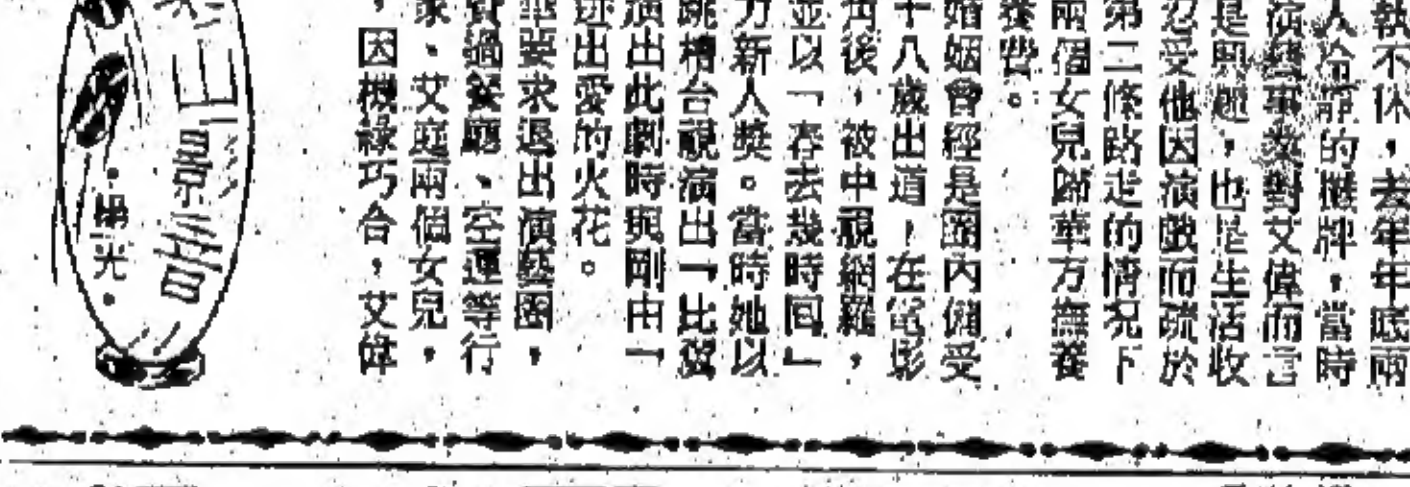 執不休，去年年底兩
人冷靜的攤牌，當時
演藝事業對艾偉而言
是興趣，也是生活收
忍受他因演戲而疏於
第二條路走的情況下
兩個女兒歸華方撫養
養費。
婚姻曾經是圈內備受
十八歲出道，在電影
角後，被中視網羅，
並以「春去幾時回」
力新人獎。當時她以
跳槽台視演出「比翼
演出此劇時與剛由「
迸出愛的火花。
華要求退出演藝圈，
資過餐廳、空運等行
家、艾庭兩個女兒，
，因機緣巧合，艾偉